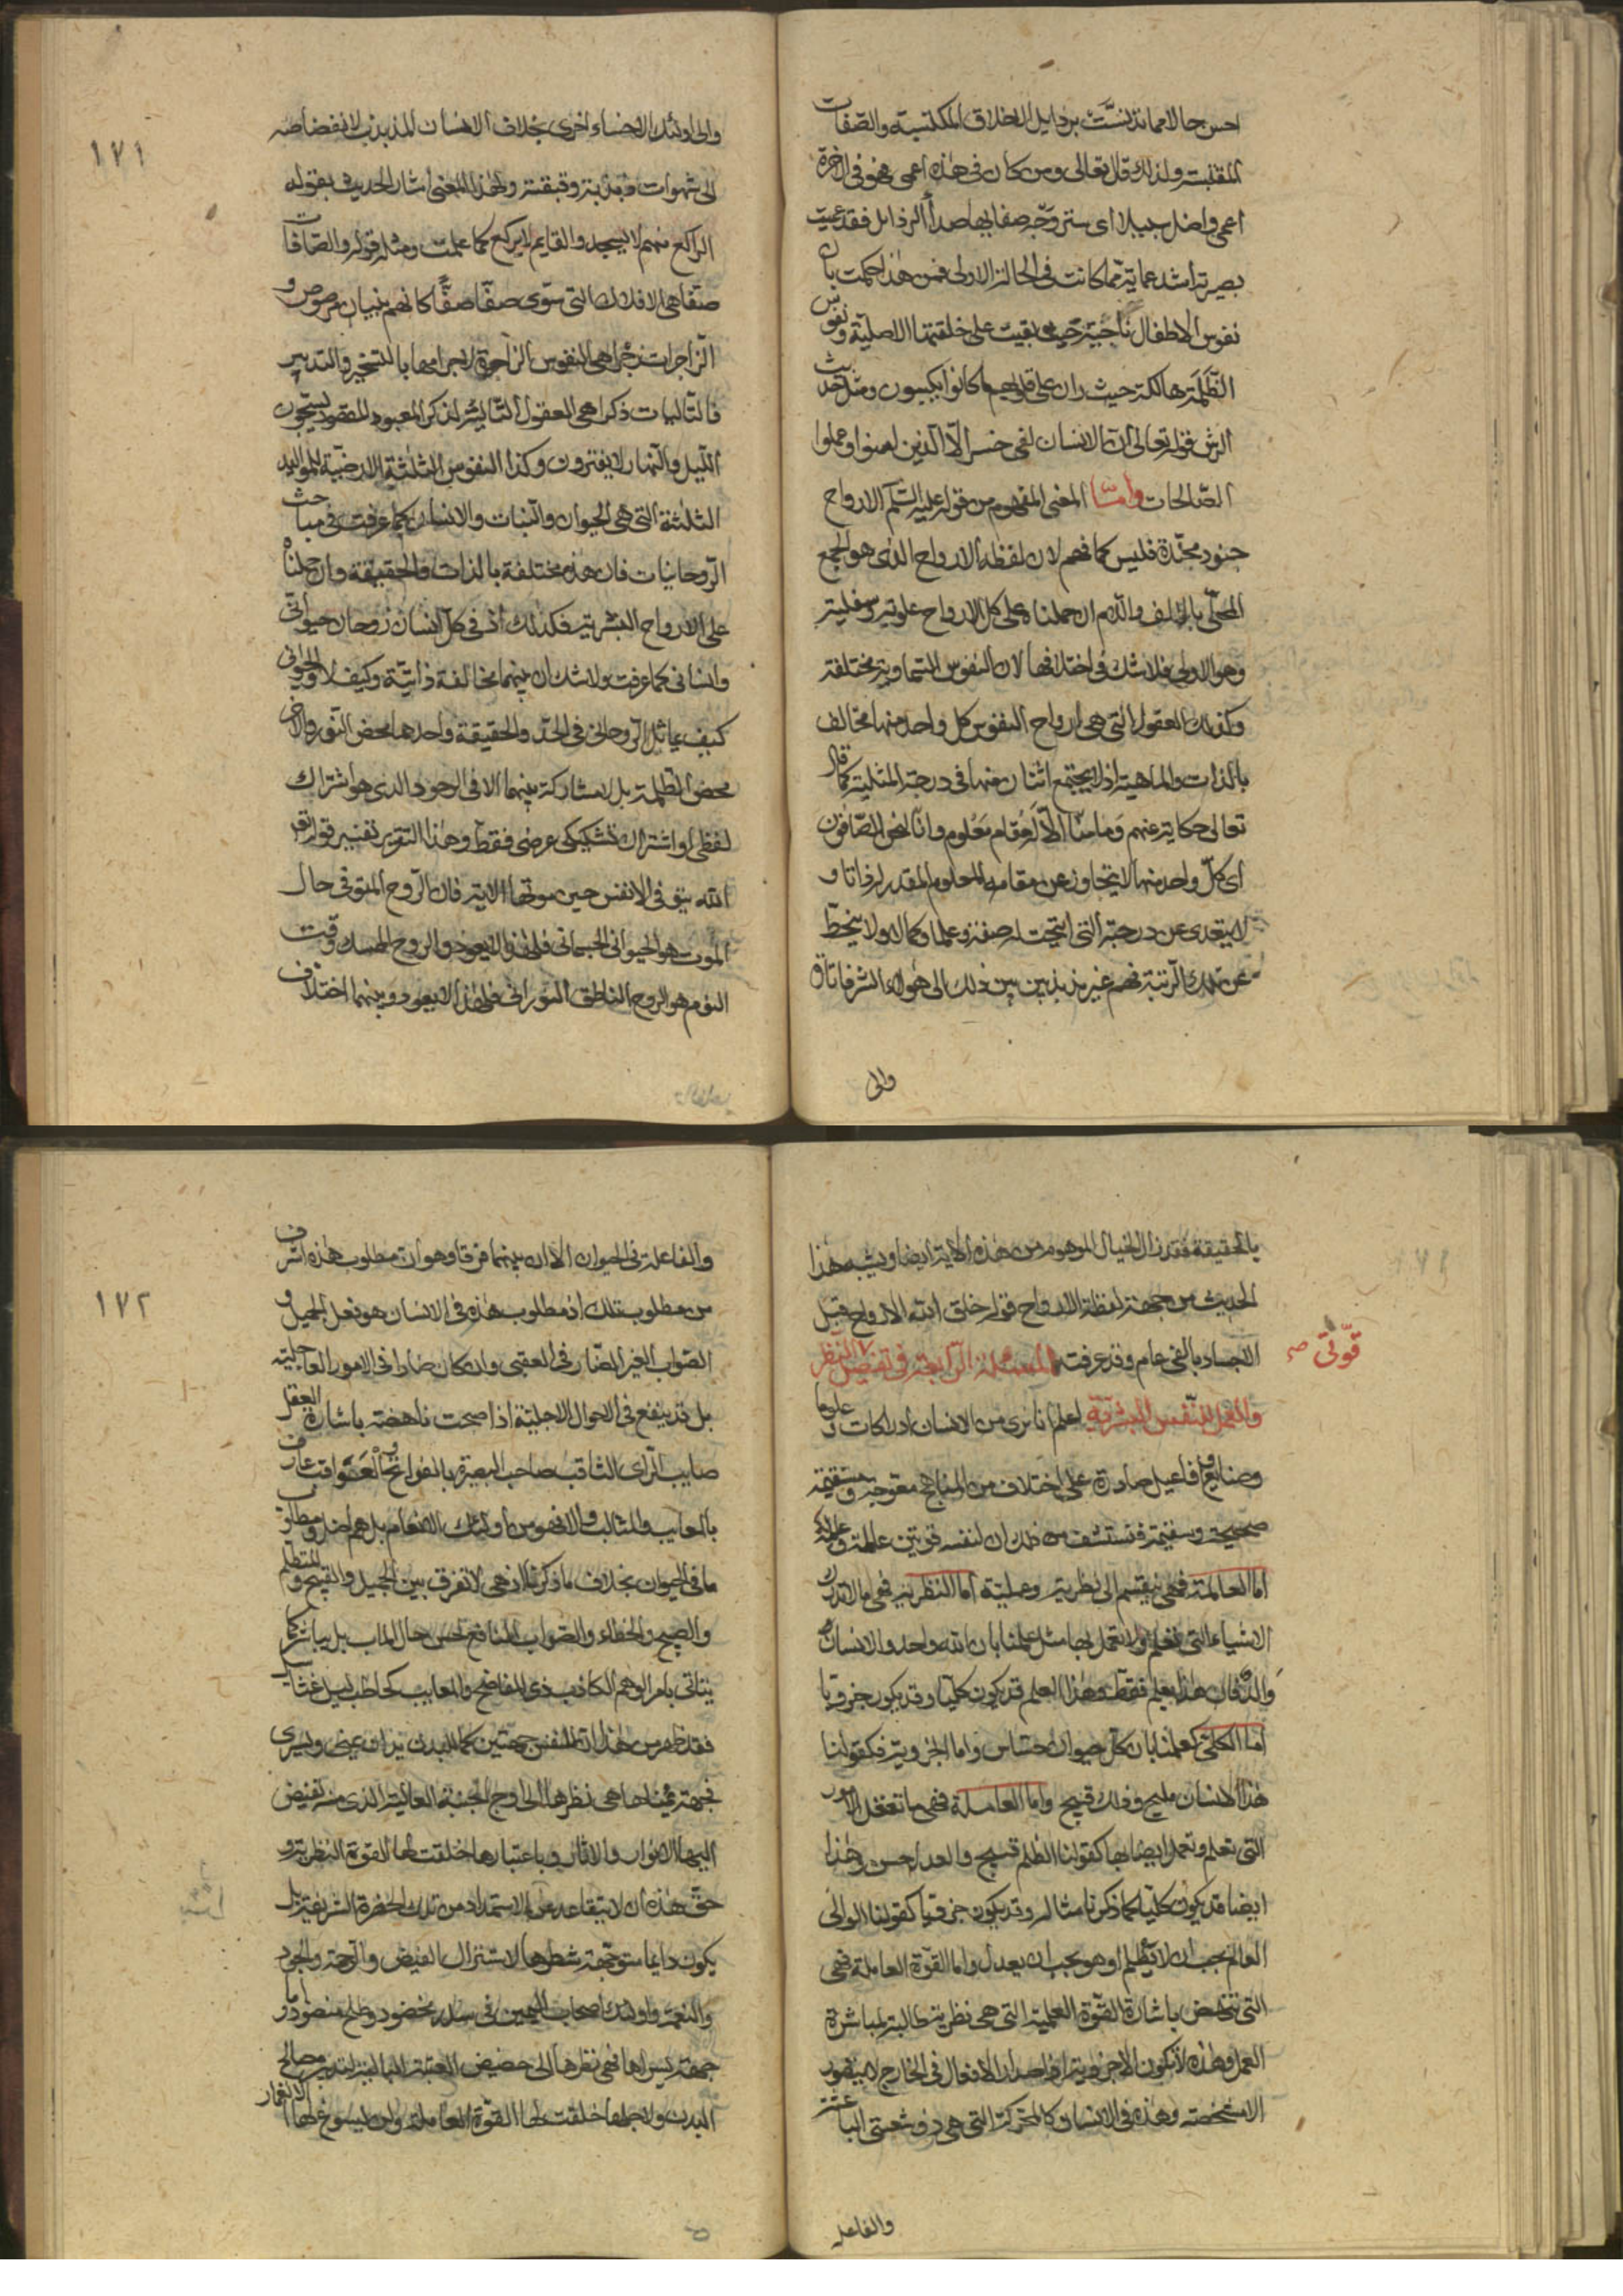 احسن حالا مما تدنست برذايل الاخلاق المكتسبة والصفات
المقتبسة ولذلك قال تعالى ومن كان فى هذه اعمى فهو فى الاخرة
اعمى واضل سبيلا اى ستر وجه صفايها صدأ الرذايل فقد عميت
بصيرته اشد عماية مما كانت فى الحالة الاولى فمن هذا حكمت بان
نفوس الاطفال ناجية حيث بقيت على خلقتها الاصلية ونفوس
الظلمة هالكة حيث ران على قلوبهم ما كانوا يكسبون ومثل حديث
الرش قوله تعالى ان الانسان لفى خسر الا الذين امنوا وعملوا
الصالحات واما المعنى المفهوم من قوله عليه السلم الارواح
جنود مجندة فليس كما فهم لان لفظه الارواح الذى هو الجمع
المحلى بالالف واللام ان حملناه على كل الارواح علوية وسفلية
وهو الاولى فلا شك فى اختلافها لان النفوس السماوية مختلفة
وكذلك العقول التى هى ارواح النفوس كل واحد منها مخالف
بالذات والماهية اذ لا يجتمع اثنان منها فى درجة المثلية كما قال
تعالى حكاية عنهم وما منا الا له مقام معلوم وانا لنحن الصافون
اى كل واحد منها لا يتجاوز عن مقامه المعلوم المقدر له فاتا و
لا يتعدى عن درجته التى انتجت له صفة وعلما وكمالا ولا ينحط
عن تلك الرتبة فهم غير مذبذبين بين ذلك الى هولاء الشرفا تارة
والى
والى اولئك الاخساء اخرى بخلاف الانسان المذبذب لانفضاضه
الى شهوات وبقبقته ولهذا المعنى اشار الحديث بقوله
الراكع منهم لا يسجد والقايم لا يركع كما علمت ومثله قوله والصافات
صفا هى الافلاك التى سوى صفا صفا كانهم بنيان مرصوص و
الزاجرات زجرا هى النفوس الزاجرة لاجرامها بالتسخير والتدبير
فالتاليات ذكرا هى العقول التالية لذكر المعبود المقصود يسبحون
الليل والنهار لا يفترون وكذا النفوس الثلثة الارضية للمواليد
الثلثة التى هى الحيوان والنبات والانسان كما عرفت فى مباحث
الروحانيات فان هذه مختلفة بالذات والحقيقة وان حملناه
على الارواح البشرية فكذلك اذ فى كل انسان روحان حيوانى
وانسانى كما عرفت ولا شك ان بينهما مخالفة ذاتية وكيف لا والحيوانى
كيف يماثل الروحانى فى الحد والحقيقة واحدها محض النور والاخر
محض الظلمة بل لا مشاركة بينهما الا فى الوجود الذى هو اشتراك
لفظى او اشتراك تشكيكى عرضى فقط وهذا التقرير تفسير قوله تع
الله يتوفى الانفس حين موتها الاية فان الروح المتوفى حال
الموت هو الحيوانى الجسمانى فلهذا لا يعود والروح الممسك وقت
النوم هو الروح الناطق النورانى فلهذا لا يعود وبينهما اختلاف
١٧١
بالحقيقة فقد زال الخيال الموهوم من هذه الاية ايضا ويشبه هذا
الحديث من جهة لفظة الارواح قوله خلق الله الارواح قبل
الاجساد بالفى عام وقد عرفت المسئلة الرابعة فى تفضيل النظر
قوتى صح
والعمل للنفس البشرية اعلم انا نرى من الانسان ادراكات وعلوما
وصنايع وافاعيل صادرة على اختلاف من المناهج معوجة ومستقيمة
صحيحة وسقيمة فنستشف من ذلك ان لنفسه قوتين عالمة وعاملة
اما العالمة فهى ينقسم الى نظرية وعملية اما النظرية فهى ما لا تدرك
الاشياء التى تعلم ولا تعمل بها مثل علمنا بان الله واحد والانسان
فان هذا يعلم فقط وهذا العلم قد يكون كليا وقد يكون جزويا
اما الكلى كعلمنا بان كل حيوان حساس واما الجزوية فكقولنا
هذا الانسان مليح وذلك قبيح واما العاملة فهى ما تعقل الامور
التى تعلم وتعمل ايضا بها كقولنا الظلم قبيح والعدل حسن وهذا
ايضا قد يكون كليا كما ذكرنا مثاله وقد يكون جزويا كقولنا الوالى
العالم يجب ان لا يظلم او هو يجب ان يعدل واما القوة العاملة فهى
التى تنهض باشارة القوة العملية التى هى نظرية طالبة لمباشرة
العمل وهذه لا تكون الا جزوية اذ اصدار الافعال فى الخارج لا يتصور
الا مشخصة وهذه فى الانسان كالمحركة التى هى ذو شعبتى الباعثة
والفاعله
والفاعلة فى الحيوان الا ان بينهما فرقا وهو ان مطلوب هذه اشرف
من مطلوب تلك اذ مطلوب هذه فى الانسان هو فعل الجميل و
الصواب الغير الضار فى العقبى وان كان ضارا فى الامور العاجلية
بل قد ينفع فى الاحوال الاجلية اذا صحت ناهضة باشارة العقل
صايب الراى الثاقب صاحب البصيرة بالعواقب عارف
بالمعايب والمثالب والا فهو من اولئك كالانعام بل هم اضل ومطلوب
ما فى الحيوان بخلاف ما ذكرنا اذ هى لا تفرق بين الجميل والقبيح والسقيم
والصحيح والخطاء والصواب النافع لحسن حال الماب بل يباشر كما
يتاتى بامر الوهم الكاذب ذى المفاضح والمعايب كحاطب ليل
فقد ظهر من هذا ان للنفس جهتين كما للبدن يدان يمنى ويسرى
فجهة يمناها هى نظرها الى اوج الجنبة العالية الذى منه تفيض
اليها الانوار والاثار وباعتبارها خلقت لها القوة النظرية و
حق هذه ان لا يتقاعد عن الاستمداد من تلك الحضرة الشريفة بل
يكون دايما متوجهة شطرها لاستنزال الفيض والرحمة والجود
والنعمة واولئك اصحاب اليمين فى سدر مخضود وطلح منضود واما
جهة يسراها فهى نظرها الى حضيض العتبة السافلية لتدبير مصالح
البدن ولاجلها خلقت لها القوة العاملة وان ليسوغ لها الانغمار
١٧٢